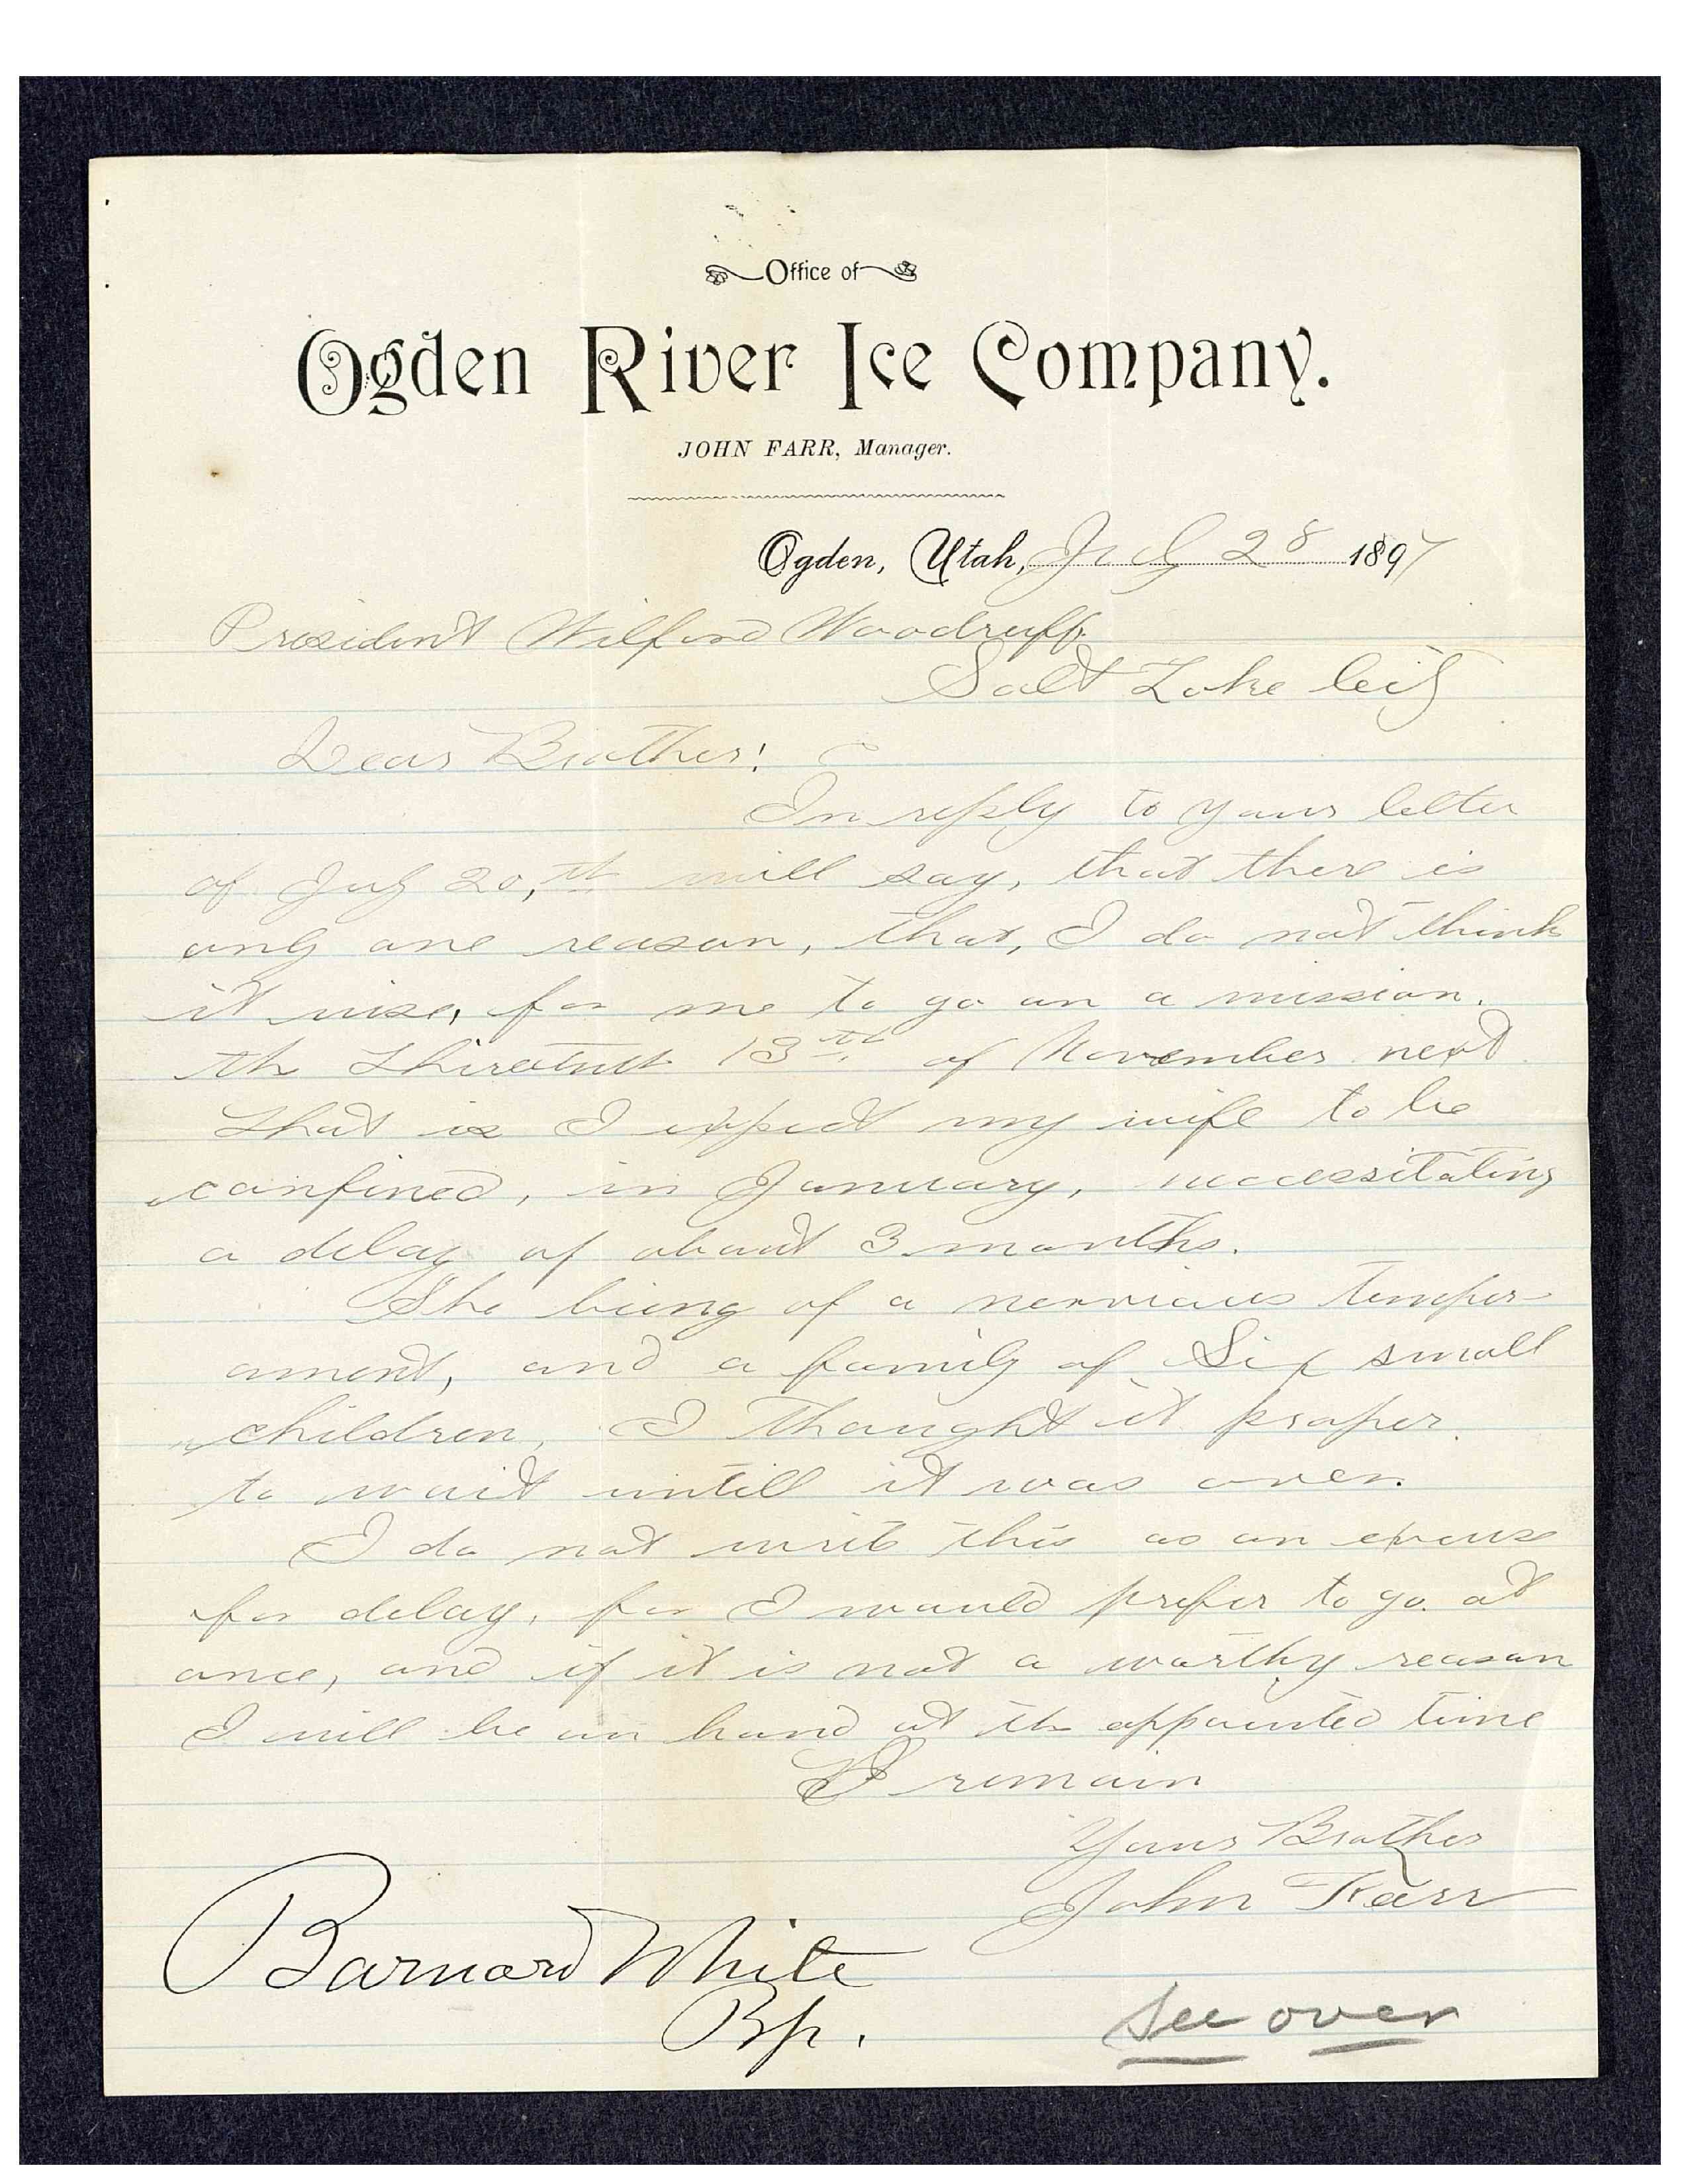 Office of
Ogden River Ice Company.
JOHN FARR, Manager.
Ogden, Utah, July 28 1897
President Wilford Woodruff
Salt Lake City
Dear Brother!
In reply to yours letter
of July 20,th will say, that there is
only one reason, that, I do not think
it wise, for me to go on a mission.
the 13th of November next.
That is I expect my wife to be
confined, in January, necessitating
a delay of about 3 months.
She being of a nervious temper
ament, and a family of Six small
children, I thought it proper
to wait untill it was over.
I do not write this as an excuse
for delay, for I would prefer to go at
once, and if it is not a worthy reason
I will be on hand at the appointed time
I remain
Yours Brother
John Farr
Barnard White
Bp.
See over